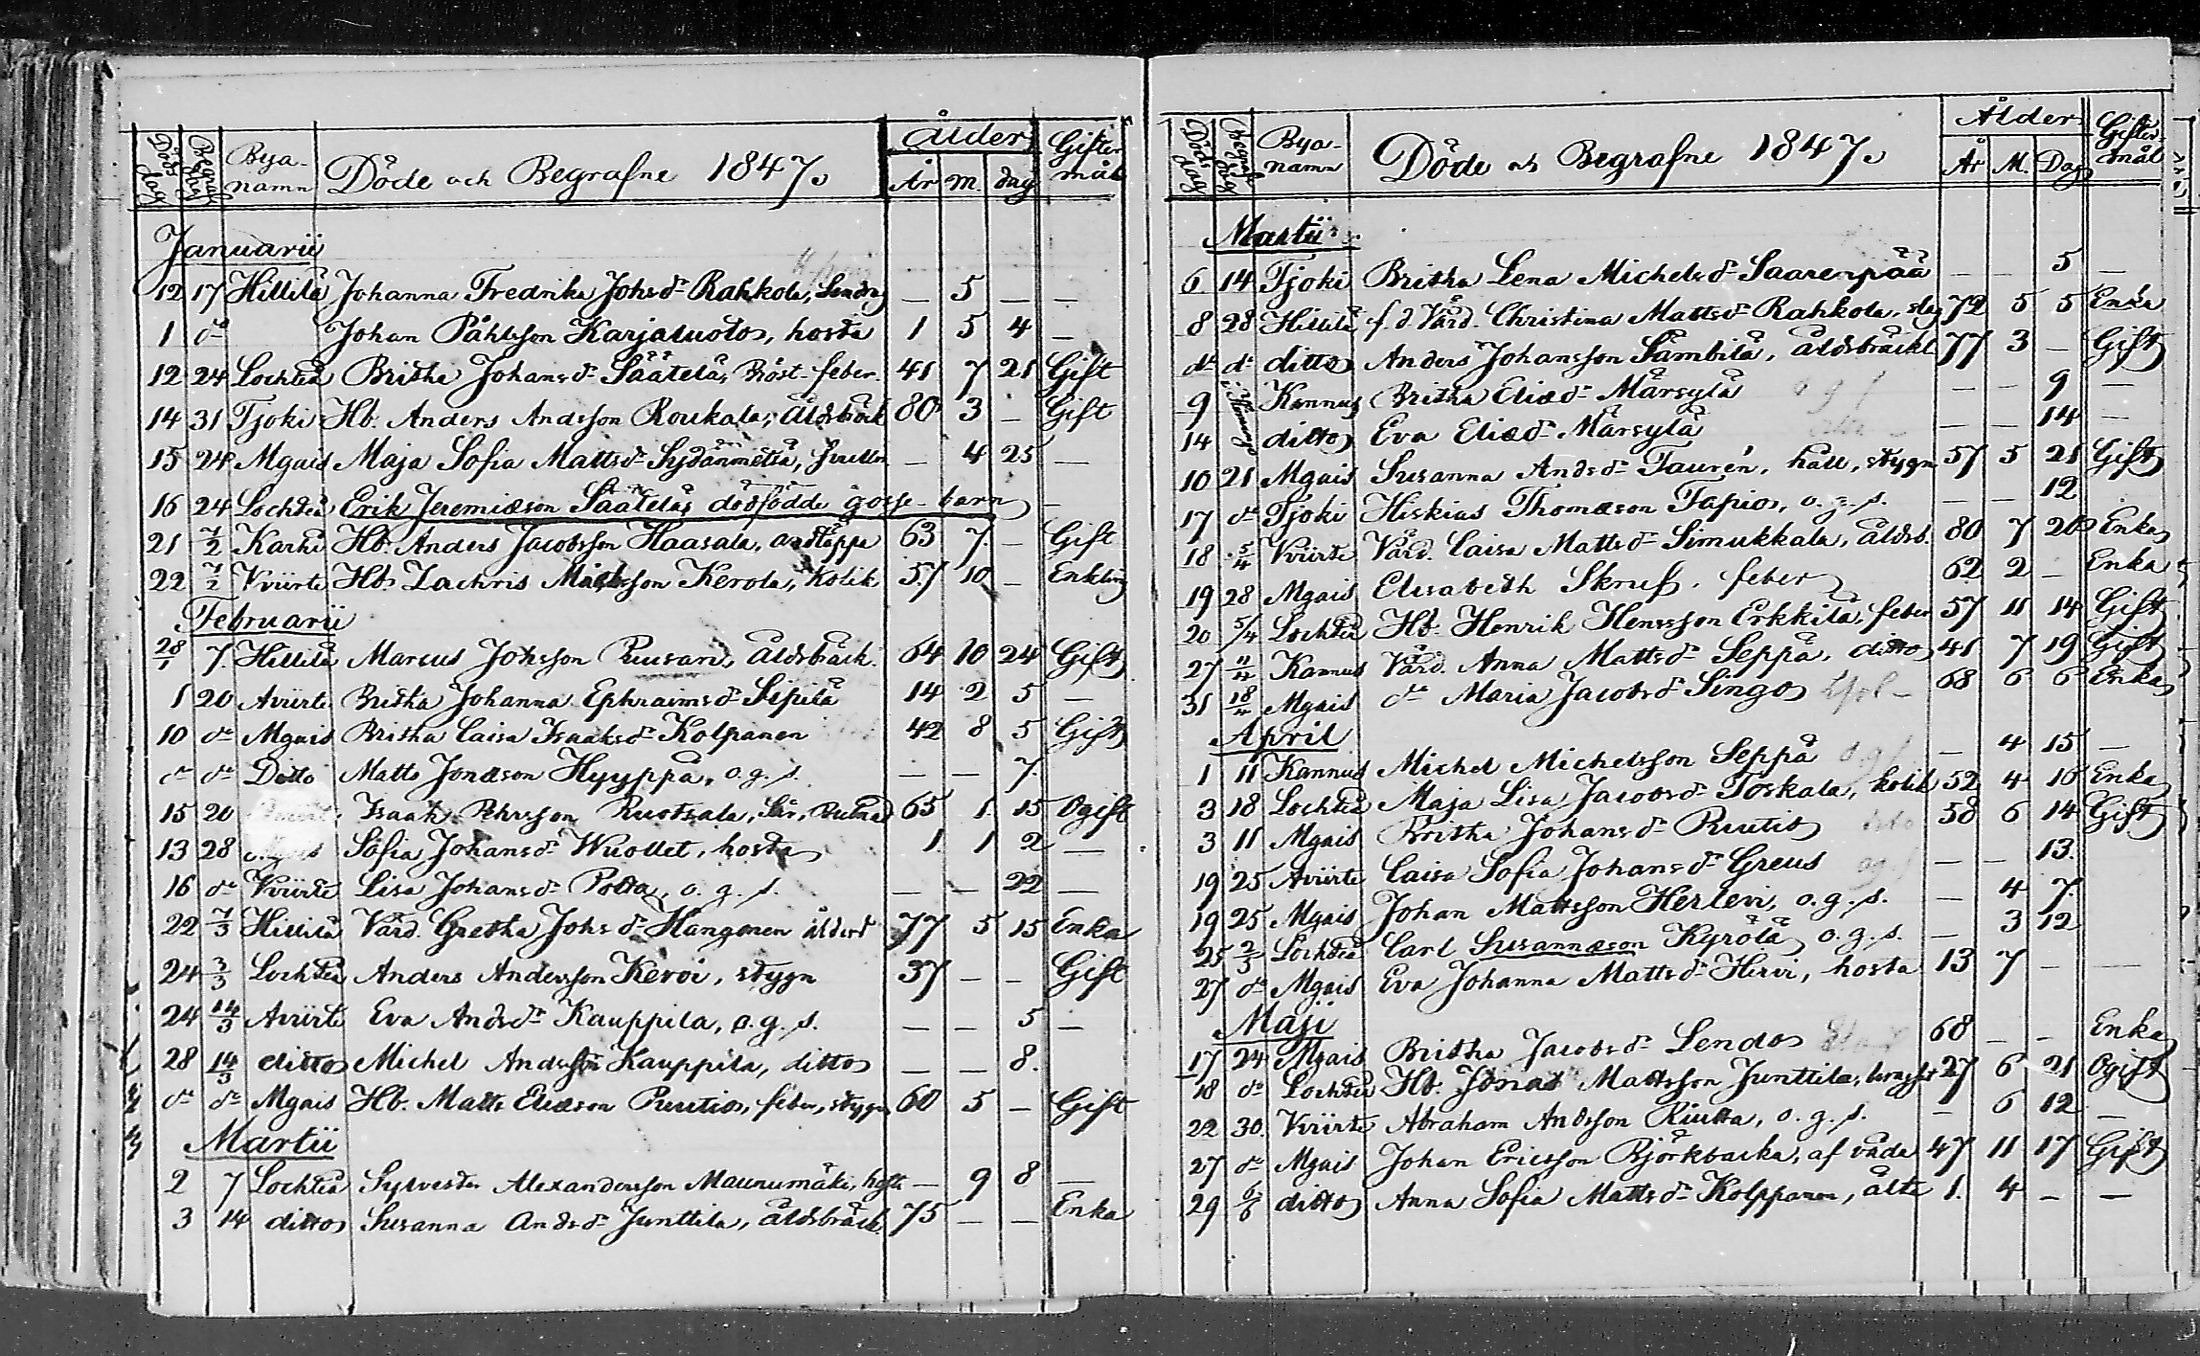 Döds dag Begraf dag Bya- namn Döde och Begrafne 1847. Ålder År m. dag Gifter mål
Januarii
12 17 Hillilä Johanna Fredrika Johsdr Rahkola, — 5 — —
1 do Johan Påhlsson Karjaluoto, hosta 1 5 4 —
12 24 Lochteå Britha Johansdr Säätelä, Bröst-feber. 41 7 21 Gift
14 31 Tjoki Hb. Anders Andsson Roukala, åldsbräck 80 3 — Gift
15 24 Mgais Maja Sofia Mattsdr Sydänmetsä, — 4 25 —
16 24 Lochteå Erik Jeremiæson Säätelä, dödfödde gosse-barn —
21 7/2 Karhi Hb. Anders Jacobsson Haasala, andtäppa 63 7. — Gift
22 7/2 Wiirte Hb. Zachris Mattsson Kerola, kolik 57 10 — Enkling
Februarii
28/1 7. Hillilä Marcus Johsson Ruusari, åldsbräck. 64 10 24 Gift
1 20 Aviirte Britha Johanna Ephraimsdr Sipilä 14 2 5 —
10 do Mgais Britha Caisa Isaaksdr Kolpanen 42 8 5 Gift
do do Ditto Matts Jonæson Hyyppä, o.g.s. — — 7.
15 20 Isaak Pehrsson Ruotsala, 65 1 15 Ogift
13 28 Mgais Sofia Johansdr Wuollet, hosta 1 1 2 —
16 do Wiirte Lisa Johansdr Polta, o.g.s. — — 22 —
22 7/3 Hillilä Värd. Gretha Johsdr Hangonen ålderd 77 5 15 Enka
24 7/3 Lochteå Anders Andersson Keroi, stygn 37 — — Gift
24 14/3 Aviirte Eva Andsdr Kauppila, o.g.s. — — 5 —
28 14/3 ditto Michel Andsson Kauppila, ditto — — 8.
do do Mgais Hb. Matts Eliæson Ruutio, feber, stygn 60 5 — Gift
Martii
2 7 Lochteå Sylvester Alexandersson Maunumäki, — 9 8 —
3 14 ditto Susanna Andsdr Junttila, åldsbräck. 75 — — Enka
Döds dag Begraf dag Bya- namn Döde och Begrafne 1847. Ålder År M. Dag Gifter- mål
Martii
6 14 Tjoki Britha Lena Michelsdr Saarenpää — — 5 —
8 28 Hillilä f.d. Värd. Christina Mattsdr Rahkola, 72 5 5 Enka
do do ditto Anders Johansson Sämbilä, åldsbräckl 77 3 — Gift
9 Kannus Britha Eliædr Märsylä o g s — — 9 —
14 ditto Eva Eliædr Märsylä — — 14 —
10 21 Mgais Susanna Andsdr Taurén, håll, stygn 57 5 21 Gift
17 do Tjoki Hiskias Thomæson Tapio, o.g.s. — — 12
18 5/4 Wiirte Värd. Caisa Mattsdr Simukkala, åldsb. 80 7 20 Enka
19 28 Mgais Elisabeth Skruf, feber 62 2 — Enka
20 5/4 Lochteå Hb. Henrik Henrsson Erkkilä, feber 57 11 14 Gift
27 11/4 Kannus Värd. Anna Mattsdr Seppä, ditto 41 7 19 Gift
31 18/4 Mgais do Maria Jacobsdr Singo 68 6 6 Enka
April
1 11 Kannus Michel Michelsson Seppä o g s — 4 15 —
3 18 Lochteå Maja Lisa Jacobsdr Toskala, kolik 52 4 10 Enka
3 11 Mgais Britha Johansdr Ruutio 58 6 14 Gift
19 25 Aviirte Caisa Sofia Johansdr Greus og s — — 13.
19 25 Mgais Johan Mattsson Herlevi, o.g.s. — 4 7.
25 2/5 Lochteå Carl Susannæson Kyrölä o.g.s. — 3 12
27 do Mgais Eva Johanna Mattsdr Hirvi, hosta 13 7 — —
Maji
17 24 Mgais Britha Jacobsdr Lendo 68 — — Enka
18 do Lochteå Hb. Jonas Mattsson Junttila, 27 6 21 Ogift
22 30. Wiirte Abraham Andsson Riutta, o.g.s. — 6 12 —
27 do Mgais Johan Ericsson Björkbacka, af våda 47 11 17 Gift
29 6/6 ditto Anna Sofia Mattsdr Kolpparen, älte 1. 4 — —